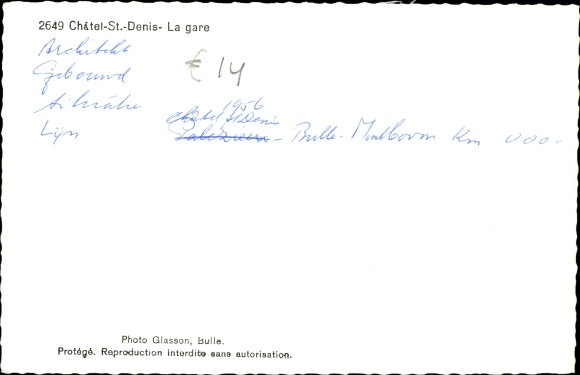 2649 Châtel-St.-Denis- La gare
Architekt
Gebouwd
€ 14
1956
Châtel St Denis
Lijn
Palézieux - Bulle - Montbovon Km 000.
Photo Glasson, Bulle.
Protégé. Reproduction interdite sans autorisation.